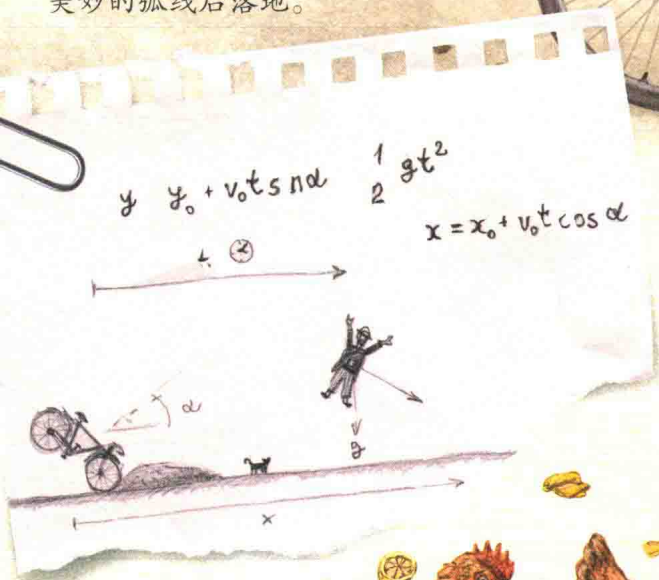 美妙的弧线后落地。
y y₀ + v₀t s nα 1/2 gt²
x = x₀ + v₀t cos α
t
α
g
x